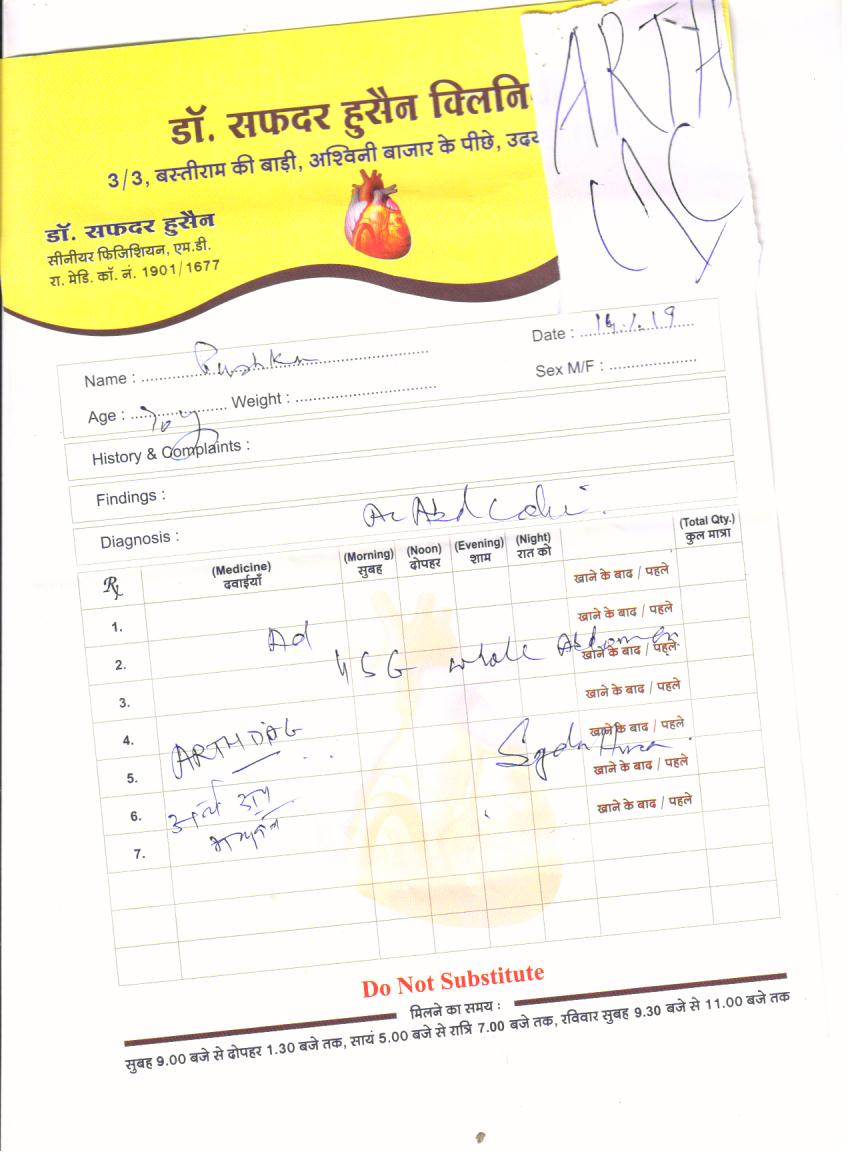 डॉ. सफदर हुसैन क्लिनि
3/3, बस्तीराम की बाड़ी, अश्विनी बाजार के पीछे, उदय
ARTH
डॉ. सफदर हुसैन
सीनीयर फिजिशियन, एम.डी.
रा. मेडि. कॉ. नं. 1901/1677
Date :
Name :
Sex M/F :
Age : Weight :
History & Complaints :
Findings :
Diagnosis : Ac Abd
Rx (Medicine) (Morning) (Noon) (Evening) (Night) (Total Qty.)
दवाईयाँ सुबह दोपहर शाम रात को कुल मात्रा
खाने के बाद / पहले
1. खाने के बाद / पहले
Ad
2. USG whole Abdomen खाने के बाद / पहले
3. खाने के बाद / पहले
4. खाने के बाद / पहले
ARTH DIAG
5. खाने के बाद / पहले
6. खाने के बाद / पहले
7.
Do Not Substitute
मिलने का समय :
सुबह 9.00 बजे से दोपहर 1.30 बजे तक, सायं 5.00 बजे से रात्रि 7.00 बजे तक, रविवार सुबह 9.30 बजे से 11.00 बजे तक